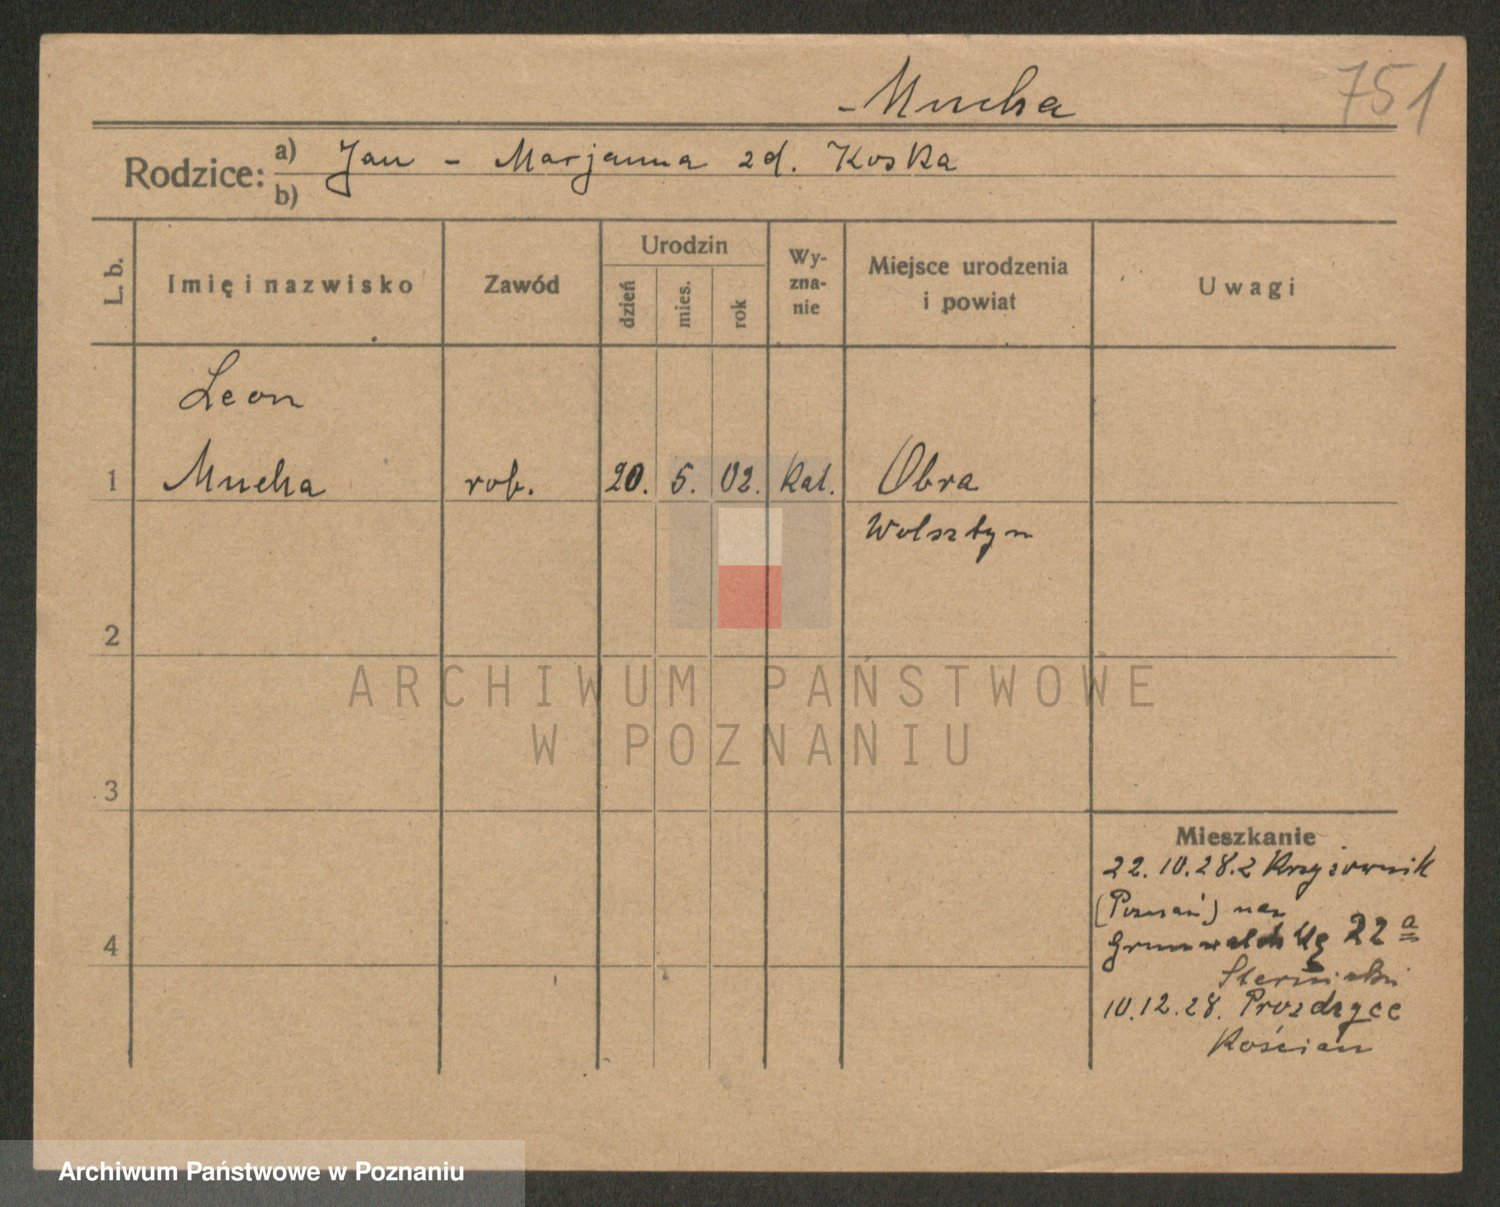 - Mucha
751
Rodzice:
a) Jan - Marjanna zd. Koska
b)
L. b.
Imię i nazwisko
Zawód
Urodzin
dzień
mies.
rok
Wy-
zna-
nie
Miejsce urodzenia
i powiat
Uwagi
Leon
1 Mucha rob. 20. 5. 02. kat. Obra
Wolsztyn
2
ARCHIWUM PAŃSTWOWE
W POZNANIU
3
Mieszkanie
22.10.28. z Krzyżownik
(Poznań) na
4
22 a
10.12.28.
Kościan
Archiwum Państwowe w Poznaniu